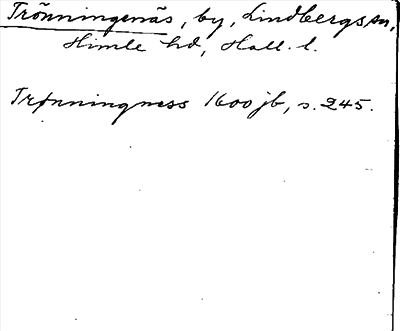 Trönningenäs, by, Lindbergs sn,
Himle hd, Hall. l.
Trønningness 1600 jb, s. 245.